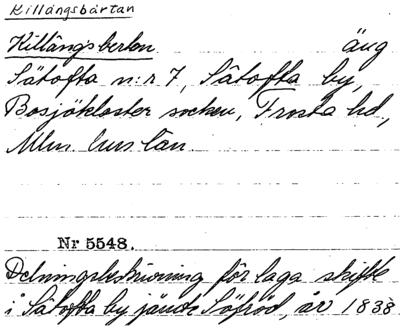 Killängsbärtan
Killängsbertan äng
Sätofta n:r 7, Sätofta by,
Bosjökloster socken, Frosta hd,
Mlm. hus län.
Nr 5548.
Delningsbeskrivning för laga skifte
i Sätofta by jämte Söfröd, år 1838